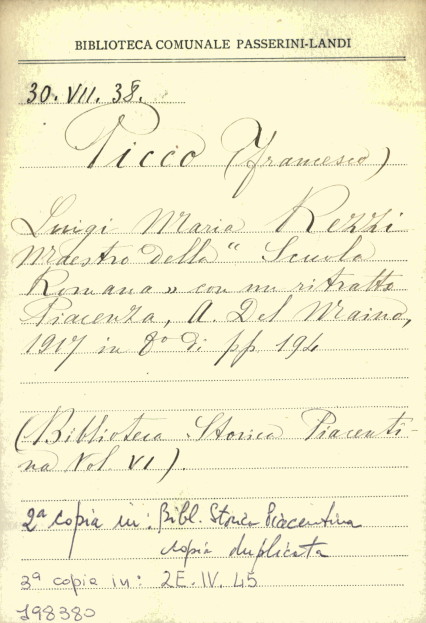 BIBLIOTECA COMUNALE PASSERINI-LANDI
30. VII. 38.
Picco (Francesco)
Luigi Maria Rezzi
Maestro della " Scuola
Romana » con un ritratto
Piacenza, A. Del Maino,
1917 in 8º di pp 194
(Biblioteca Storica Piacenti-
na Vol. VI).
2ª copia in: Bibl. Storica Piacentina
copia duplicata
3ª copia in: 2E. IV. 45
198380